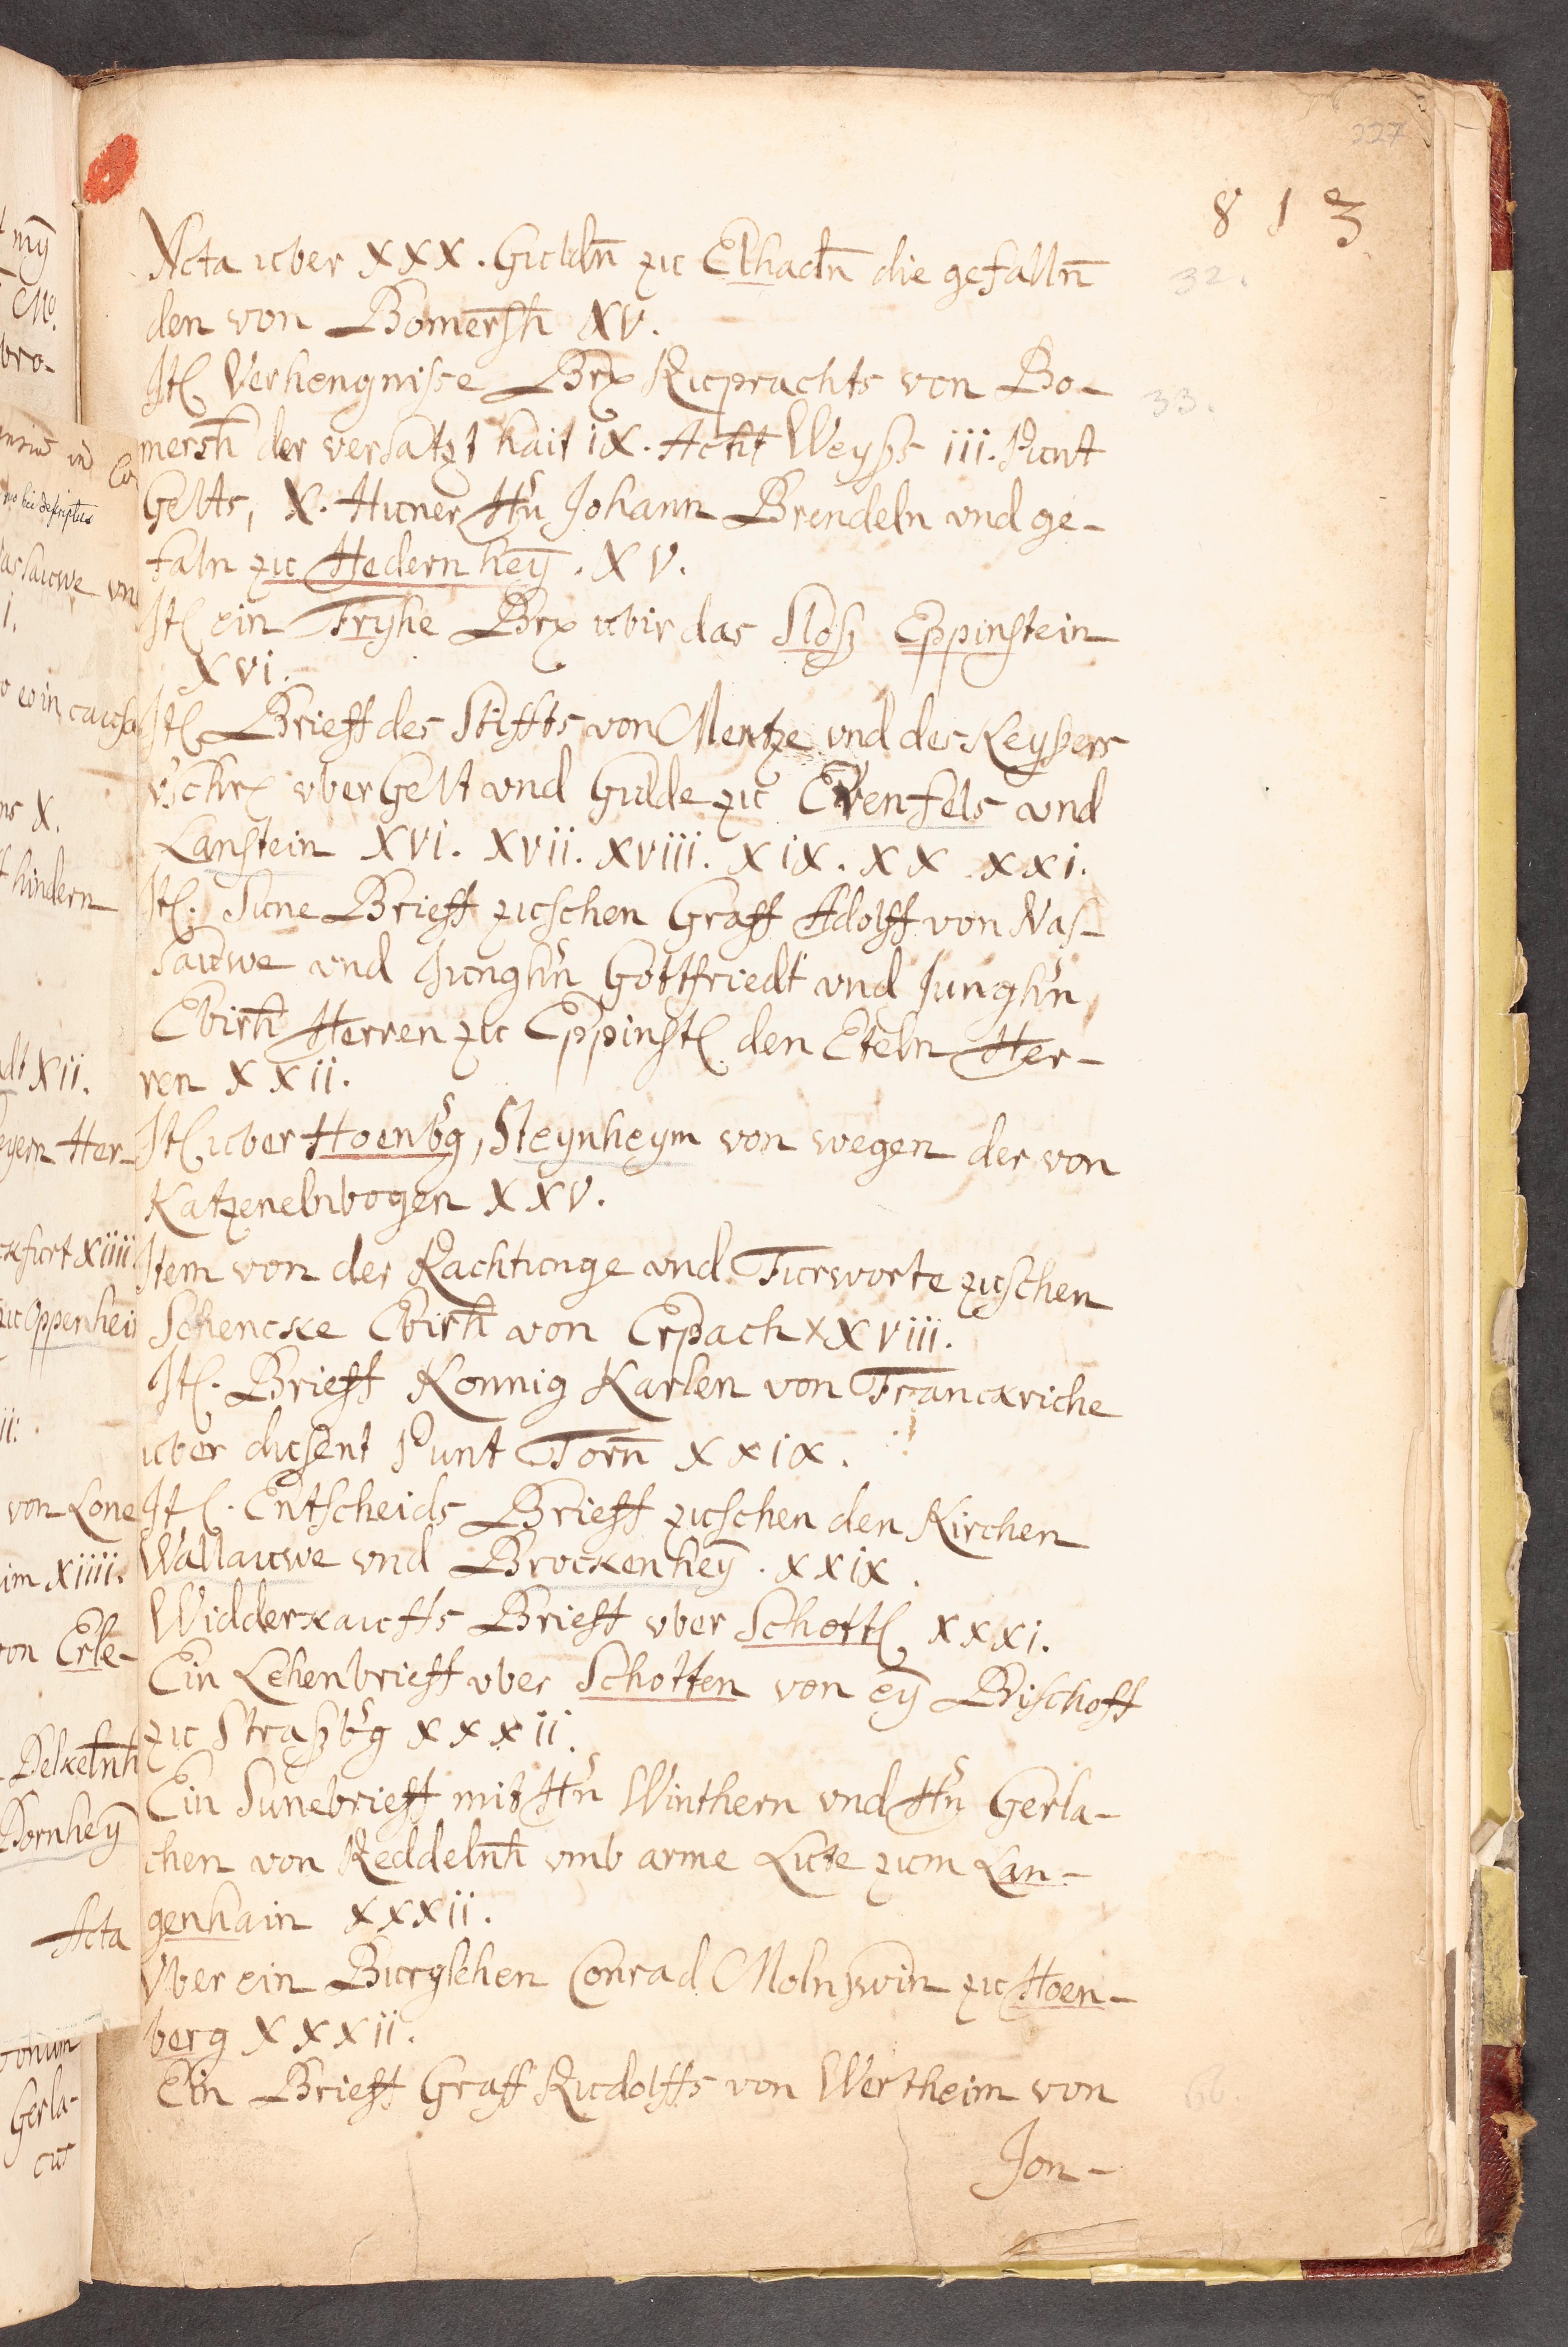 227
8 1 3
Acta uber XXX. Guldn̄ zu Elhadn̄ die gefalln̄
32.
den von Bomersh̄ XV.
Itl Verhengnisse Brx Ruprachts von Bo-
33.
mersh̄ der versatzt hait IX. Acht Weyßs iii. Punt
Gelts, X. Huner Hn̄ Johann Brendeln vnd ge-
faln zu Hedernhey̅. XV.
Itl ein Fryhe Brx ubir das Sloß Eppinstein
XVI.
Itl Brieff des Stiffts von Mentze vnd des Keyßers
vber Gelt vnd Gulde zu Erenfels vnd
Lanstein XVI. XVII. XVIII. XIX. XX. XXI.
Itl. Sune Brieff zuschen Graff Adolff von Nas-
sauwe vnd Jungh'n Gottfriedt vnd Jungh'n
Ebirh̄ Herren zu Eppinstl den Eteln Her-
ren XXII.
Itl uber Hoenb'g, Steynheym von wegen der von
Katzenelnbogen XXV.
Item von der Rachtunge vnd Furworte zuschen
Schencke Ebirh̄ von Erpach XXVIII.
Itl. Brieff Konnig Karlen von Franckriche
uber dusent Punt Torn̄ XXIX.
Itl. Entscheids Brieff zuschen den Kirchen
Wallauwe vnd Brockenhey̅. XXIX.
Widderkauffs Brieff vber Schottl XXXI.
Ein Lehenbrieff vber Schotten von ey̅ Bischoff
zu Straßb'g XXXII.
Ein Sunebrieff mit Hn̄ Winthern vnd Hn̄ Gerla-
chen von Reddelnh̄ vmb arme Lute zum Lan-
genhain XXXII.
Vber ein Burglehen Conrad Molnßwin zu Hoen-
berg XXXII.
Ein Brieff Graff Rudolffs von Wertheim von
Jon-
my̅
bro-
sauwe vn
i.
eo in causa
X.
hindern
XII.
Her-
furt XIIII.
zu Oppenhei
von Lone
im XIIII.
von Erle-
Delkelnh̄
Dornhey̅
Acta
Gerla-
cus